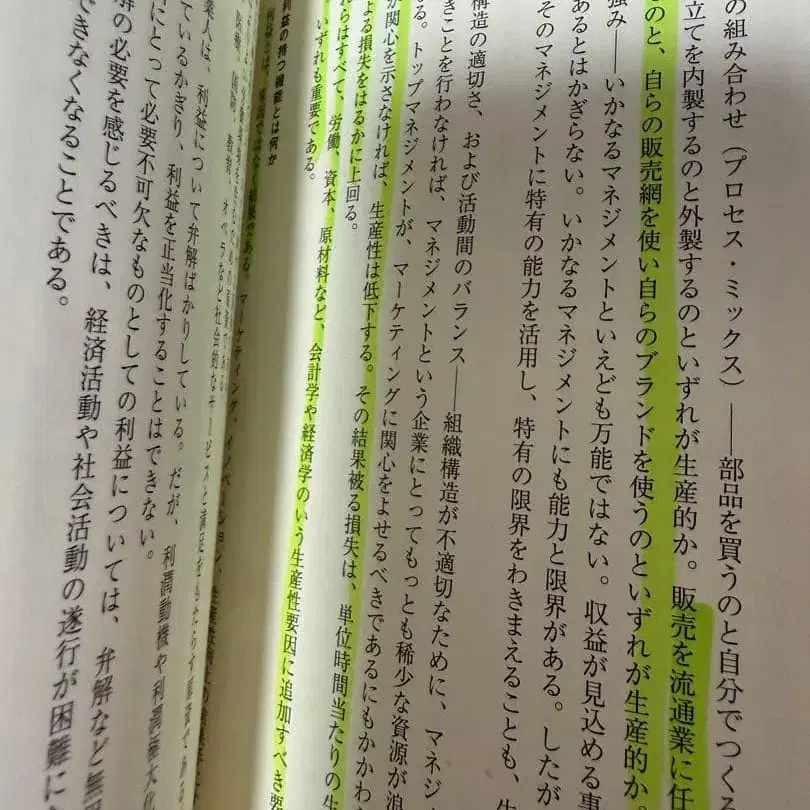 の組み合わせ（プロセス・ミックス）――部品を買うのと自分でつくる
立てを内製するのと外製するのといずれが生産的か。販売を流通業に任
ものと、自らの販売網を使い自らのブランドを使うのといずれが生産的か。
強み――いかなるマネジメントといえども万能ではない。収益が見込める事
あるとはかぎらない。いかなるマネジメントにも能力と限界がある。したが
そのマネジメントに特有の能力を活用し、特有の限界をわきまえることも、生
構造の適切さ、および活動間のバランス――組織構造が不適切なために、マネジ
きことを行わなければ、マネジメントという企業にとってもっとも稀少な資源が浪
る。トップマネジメントが、マーケティングに関心をよせるべきであるにもかかわ
が関心を示さなければ、生産性は低下する。その結果被る損失は、単位時間当たりの生
よる損失をはるかに上回る。
らはすべて、労働、資本、原材料など、会計学や経済学のいう生産性要因に追加すべき要
いずれも重要である。
利益の持つ機能とは何か
利益とは、原因ではなく結果である。マーケティング、イノベーション、
医療、国防、教育、オペラなど社会的なサービスと満足をもたらす原資である
業人は、利益について弁解ばかりしている。だが、利潤動機や利潤極大化
ているかぎり、利益を正当化することはできない。
にとって必要不可欠なものとしての利益については、弁解など無用
解の必要を感じるべきは、経済活動や社会活動の遂行が困難に
できなくなることである。